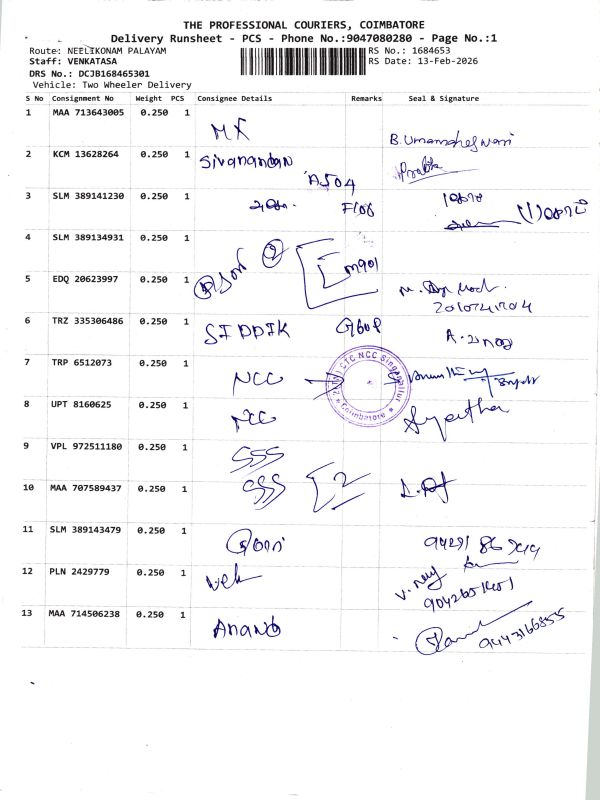 THE PROFESSIONAL COURIERS, COIMBATORE
Delivery Runsheet - PCS - Phone No.:9047080280 - Page No.:1
Route: NEELIKONAM PALAYAM
RS No.: 1684653
Staff: VENKATASA
RS Date: 13-Feb-2026
DRS No.: DCJB168465301
Vehicle: Two Wheeler Delivery
S No Consignment No Weight PCS Consignee Details Remarks Seal & Signature
1 MAA 713643005 0.250 1 MK
2 KCM 13628264 0.250 1 Sivanandan A504
3 SLM 389141230 0.250 1 F108
4 SLM 389134931 0.250 1 2
5 EDQ 20623997 0.250 1 M901
6 TRZ 335306486 0.250 1 SIDDIK G608
7 TRP 6512073 0.250 1 NCC
CTC NCC Singanallur
Coimbatore
8 UPT 8160625 0.250 1 NCC
9 VPL 972511180 0.250 1 SSS
10 MAA 707589437 0.250 1 SSS 2
11 SLM 389143479 0.250 1 Gori
12 PLN 2429779 0.250 1 Vek
9042651401
13 MAA 714506238 0.250 1 Anand 9443166855